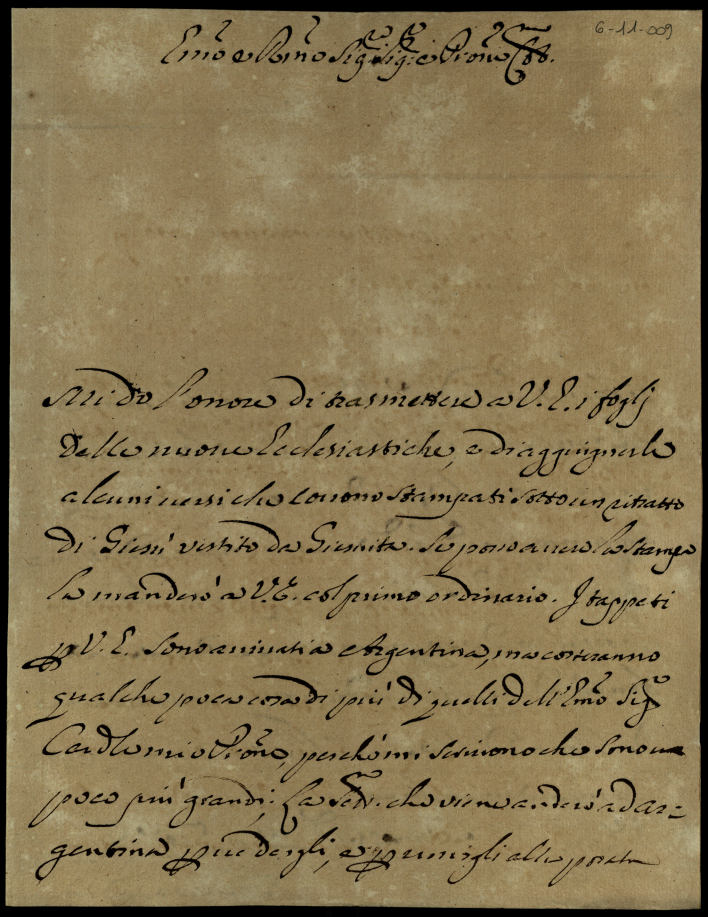 6-11-009
Emo e Rmo Sig. Sig. e Prone
Mi do l'onore di trasmettere a V. E. i foglj
delle nuove Ecclesiastiche, e di aggiugnerle
alcuni versi che corrono stampati sotto un ritratto
di Giesù vestito da Giesuita. Se posso avere la stampa
la manderò a V. E. col primo ordinario. I tappeti
p V. E. sono arrivati a Argentina, ma costeranno
qualche poca cosa di più di quelli dell'Emo Sig.
Cardle mio Prone, perchè mi scrivono che sono un
poco più grandi; La che viene anderò ad Ar=
gentina p vedergli, e p umigli alla